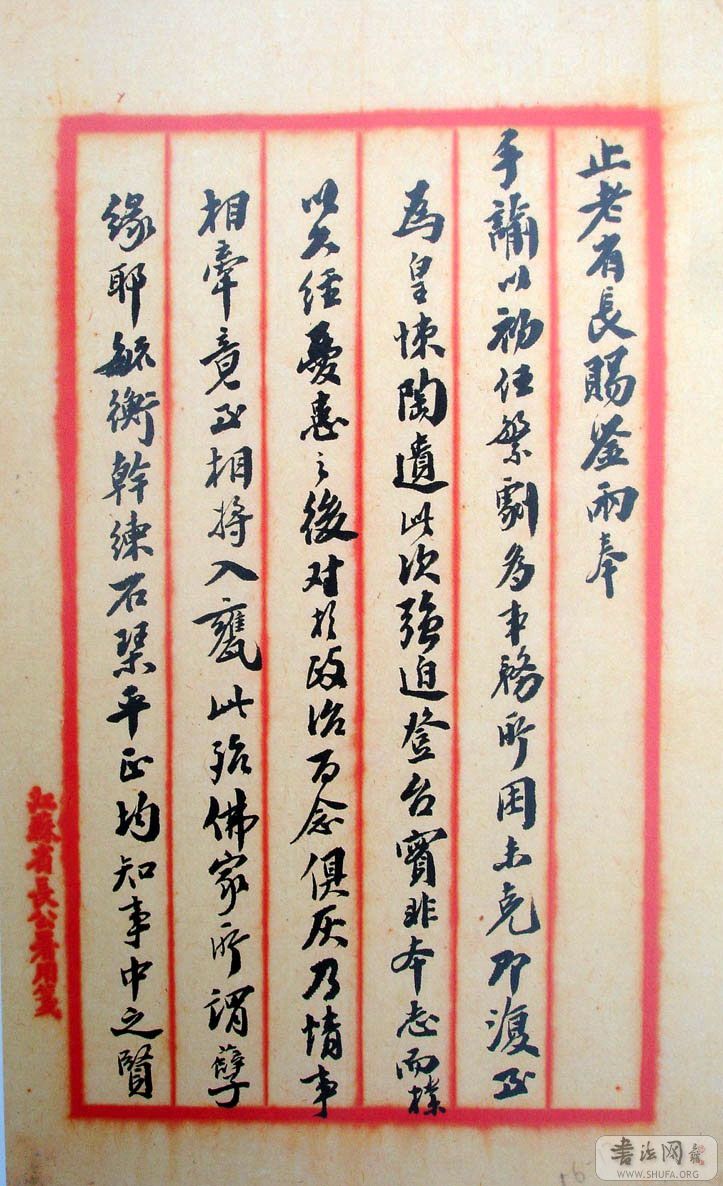 止老省長賜鉴兩奉
手諭以初任繁劇為事務所困未克即復至
為皇悚陶遺此次強迫登台實非本志而操
以久經憂患之後对於政治百念俱灰乃情事
相牽竟至相將入甕此殆佛家所謂孽
緣耶毓衡幹練石琹平正均知事中之賢
江蘇省長公署用箋
书法网
WWW.SHUFA.ORG